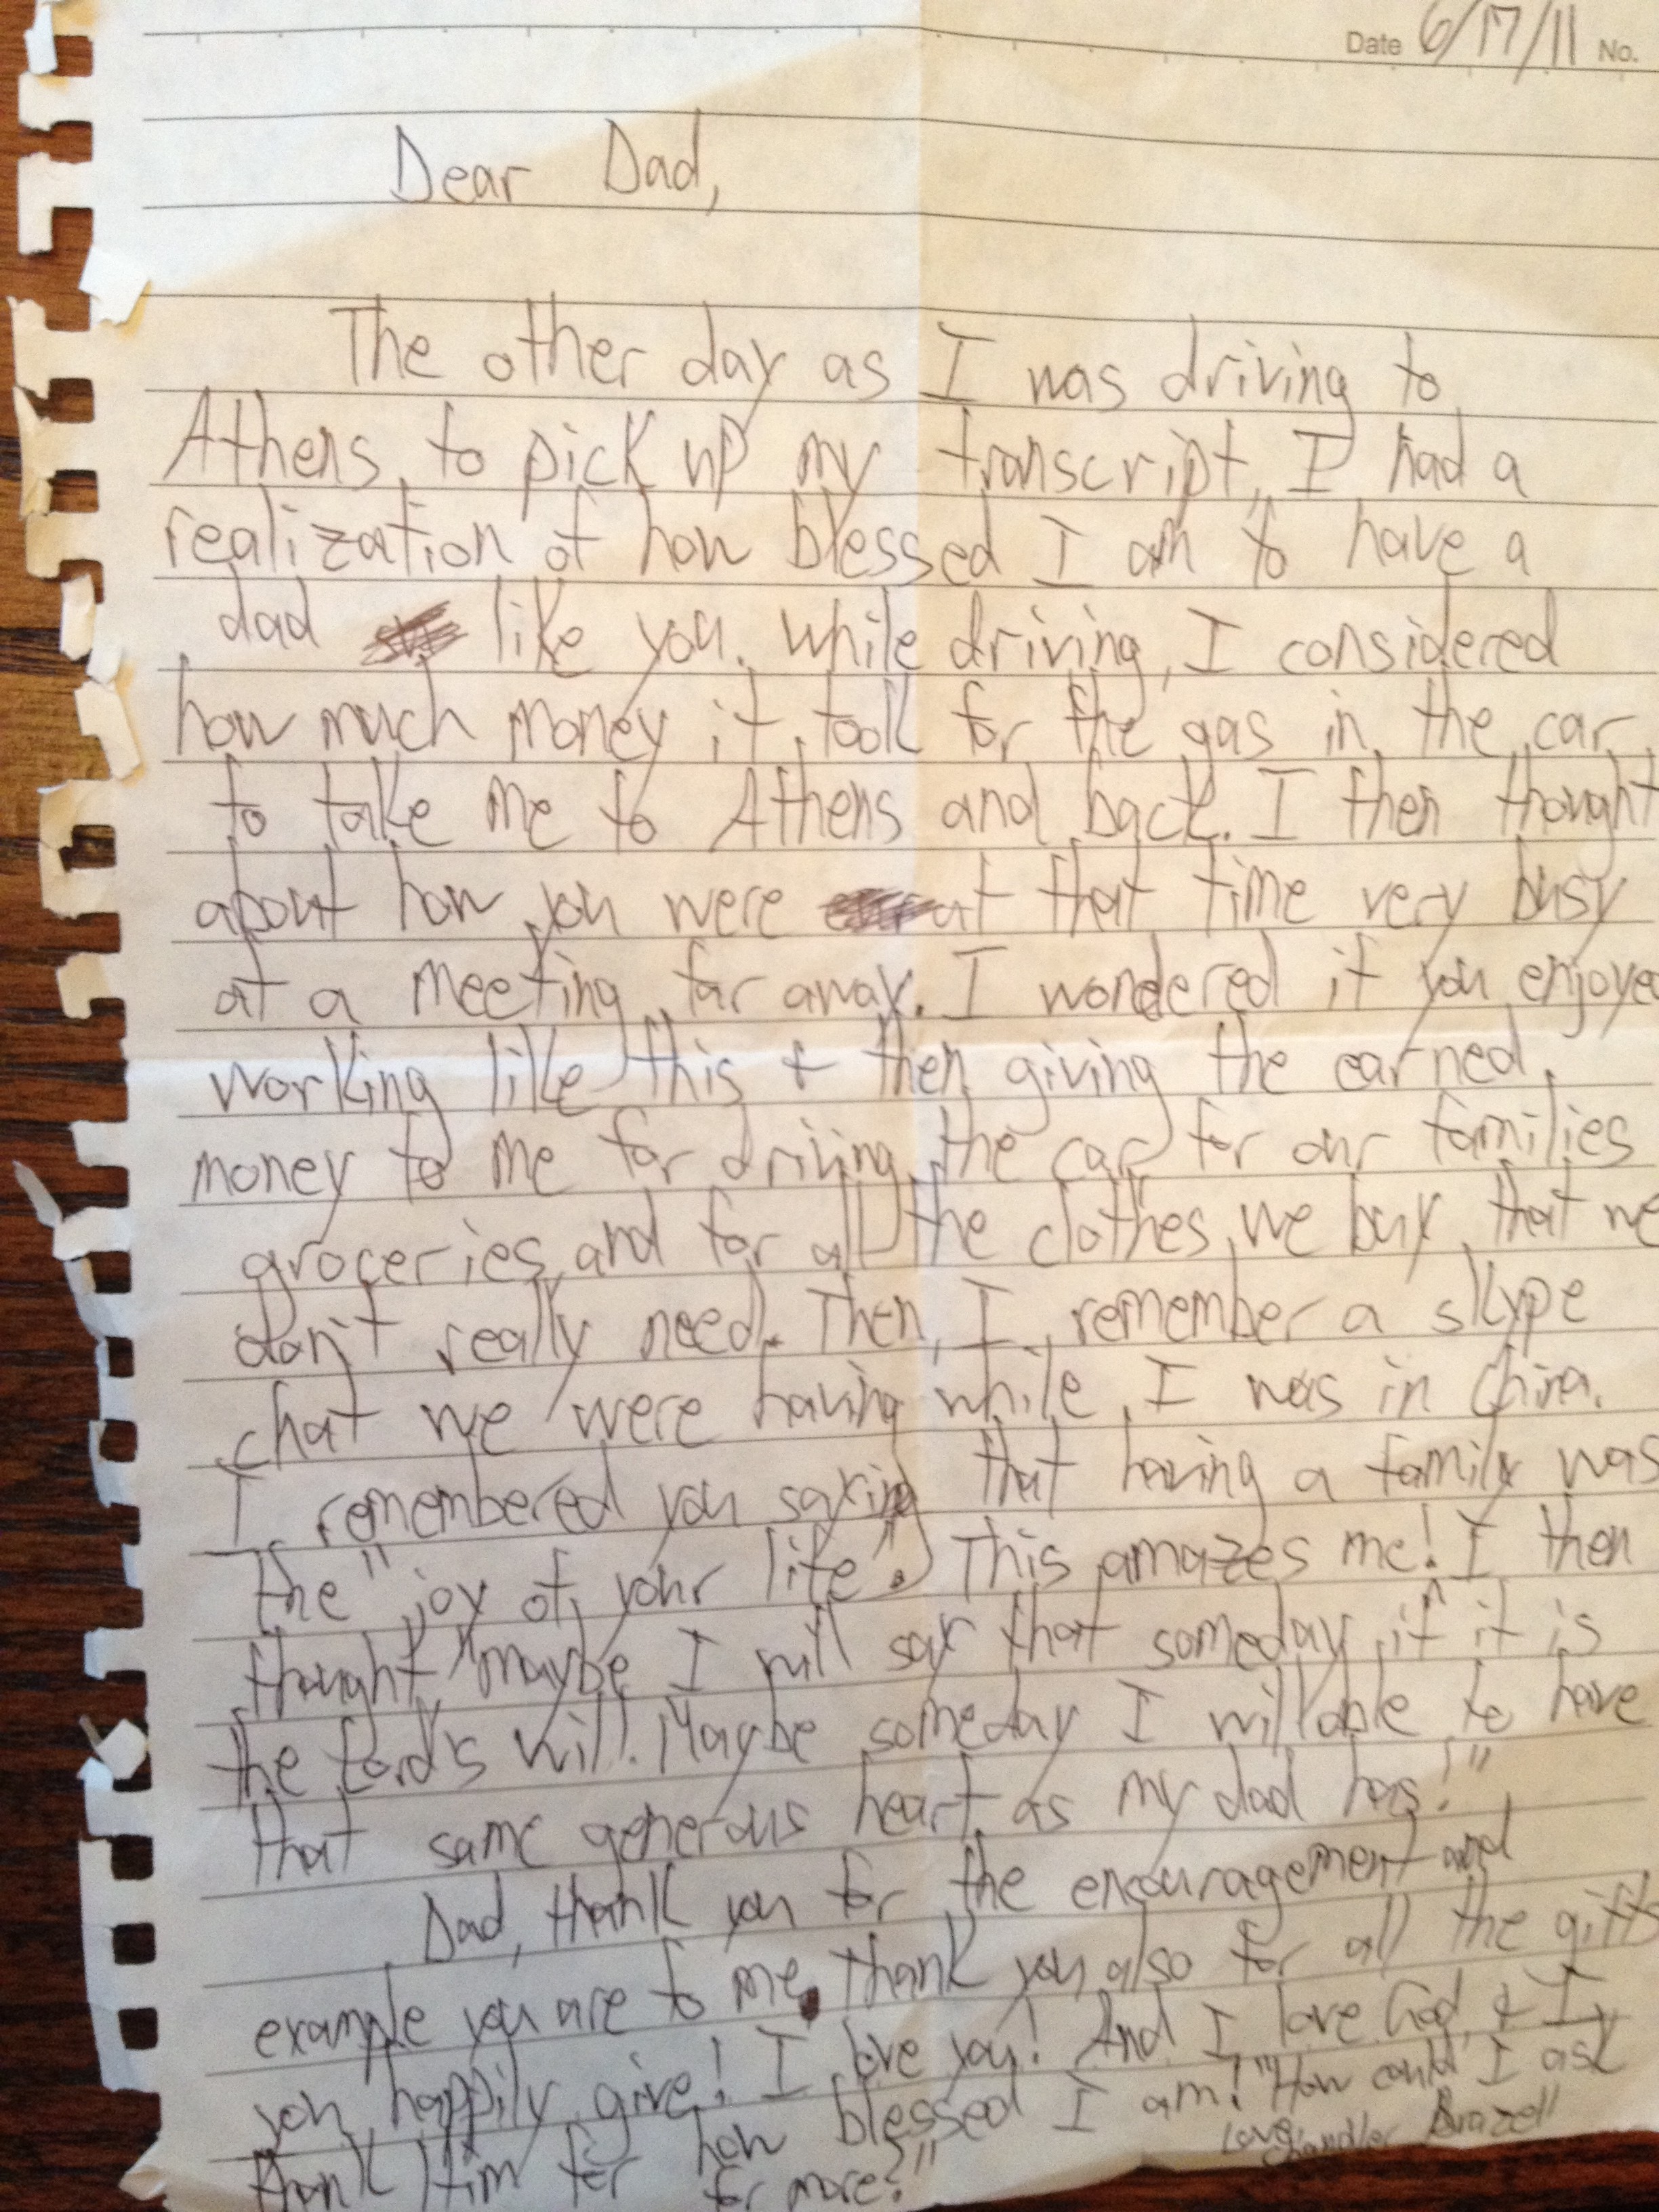 Date 6/17/11 No.
Dear Dad,
The other day as I was driving to
Athens, to pick up my transcript, I had a
realization of how blessed I am to have a
dad like you. While driving, I considered
how much money it took for the gas in the car
to take me to Athens and back. I then thought
about how you were at that time very busy
at a meeting far away. I wondered if you enjoyed
working like this + then giving the earned
money to me for driving the car, for our families
groceries, and for all the clothes we buy that we
don't really need. Then, I remember a skype
chat we were having while I was in China.
I remembered you saying that having a family was
the "joy of your life". This amazes me! I then
thought, "maybe I will say that someday, if it is
the Lord's will. Maybe someday I will able to have
that same generous heart as my dad has!"
Dad, thank you for the encouragement and
example you are to me. Thank you also for all the gifts
you happily give! I love you! And I love God, & I
thank Him for how blessed I am! "How could I ask
for more?"
Love,
Chandler Brazell